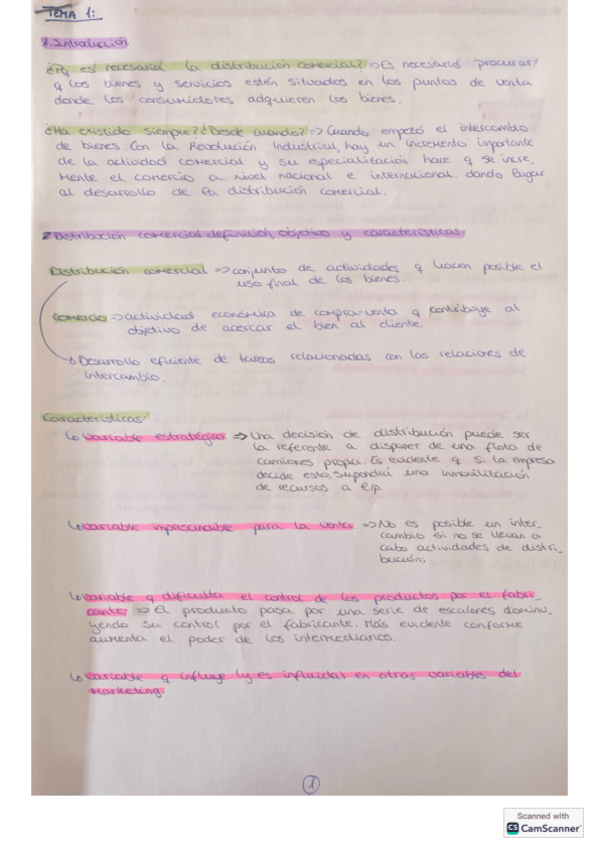 TEMA 1:
1. Introducción
¿Pq es necesaria la distribución comercial? => Es necesario procurar
q los bienes y servicios estén situados en los puntos de venta
donde los consumidores adquieren los bienes.
¿Ha existido siempre? ¿Desde cuando? => Cuando empezó el intercambio
de bienes. Con la Revolución Industrial, hay un incremento importante
de la actividad comercial y su especialización hace q se incre_
mente el comercio a nivel nacional e internacional. dando lugar
al desarrollo de la distribución comercial.
2. Distribución comercial: definición, objetivo y características.
Distribución comercial => conjunto de actividades q hacen posible el
uso final de los bienes.
Comercio => actividad económica de compra-venta q contribuye al
objetivo de acercar el bien al cliente.
Desarrollo eficiente de tareas relacionadas con las relaciones de
intercambio.
Características:
↳ Variable estratégica => Una decisión de distribución puede ser
la referente a disponer de una flota de
camiones propia. Es evidente q si la empresa
decide esto, supondrá una inmovilización
de recursos a l/p.
↳ Variable imprescindible para la venta. => No es posible un inter_
cambio si no se llevan a
cabo actividades de distri_
bución.
↳ Variable q dificulta el control de los productos por el fabri_
cante => El producto pasa por una serie de escalones disminu_
yendo su control por el fabricante. Más evidente conforme
aumenta el poder de los intermediarios.
↳ Variable q influye (y es influida) en otras variables del
Marketing.
1
Scanned with
CS CamScanner